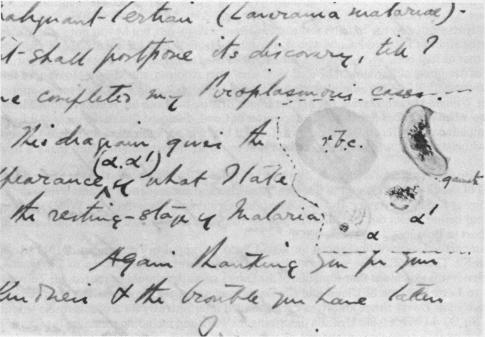 malignant-tertian (Laverania malariae).
shall postpone its discovery, till I
completed my Piroplasmosis cases.
This diagram gives the r.b.c.
(α.α')
appearance of what I take gamete
the resting-stage of Malaria α α'
Again thanking you for your
kindness & the trouble you have taken